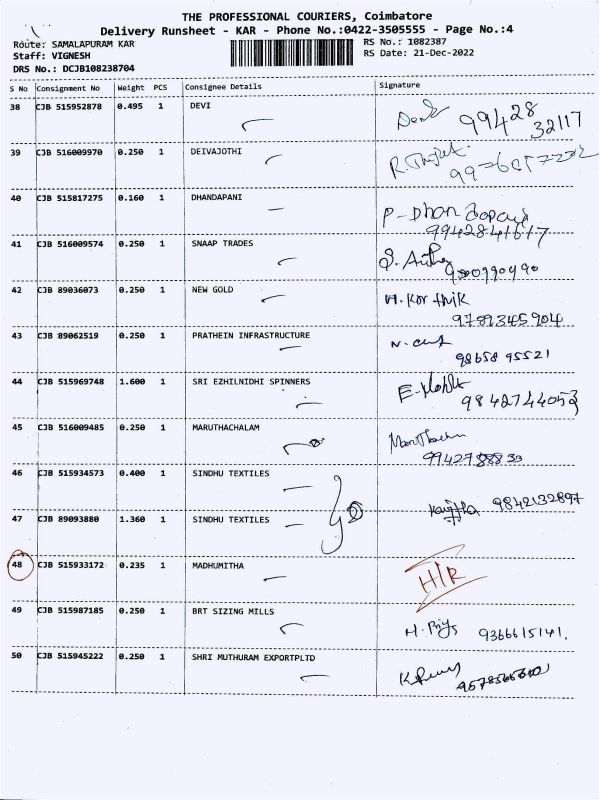 THE PROFESSIONAL COURIERS, Coimbatore
Delivery Runsheet - KAR - Phone No.:0422-3505555 - Page No.:4
Route: SAMALAPURAM KAR
RS No.: 1082387
Staff: VIGNESH
RS Date: 21-Dec-2022
DRS No.: DCJB108238704
S No Consignment No Weight PCS Consignee Details Signature
38 CJB 515952878 0.495 1 DEVI 99428
32117
39 CJB 516009970 0.250 1 DEIVAJOTHI
40 CJB 515817275 0.160 1 DHANDAPANI P-Dhandapani
9942841617
41 CJB 516009574 0.250 1 SNAAP TRADES
42 CJB 89036073 0.250 1 NEW GOLD M. Karthik
9789345904
43 CJB 89062519 0.250 1 PRATHEIN INFRASTRUCTURE
98658 95521
44 CJB 515969748 1.600 1 SRI EZHILNIDHI SPINNERS
9842744053
45 CJB 516009485 0.250 1 MARUTHACHALAM
46 CJB 515934573 0.400 1 SINDHU TEXTILES
9842132897
47 CJB 89093880 1.360 1 SINDHU TEXTILES
48 CJB 515933172 0.235 1 MADHUMITHA H/R
49 CJB 515987185 0.250 1 BRT SIZING MILLS 9366615141.
50 CJB 515945222 0.250 1 SHRI MUTHURAM EXPORTPLTD